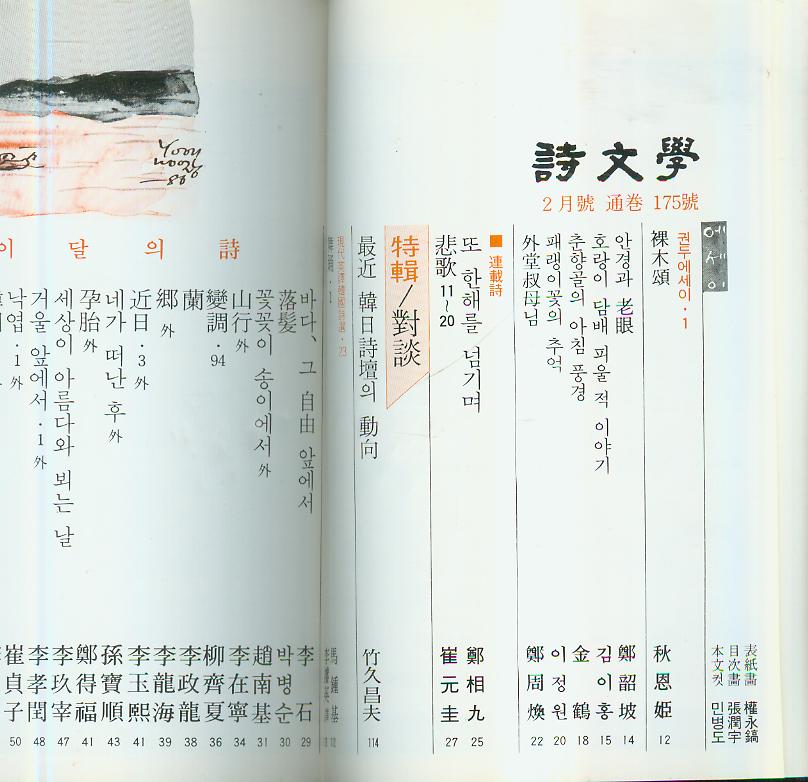 詩文學
2月號 通巻 175號
에세이
表紙畫 權永鎬
目次畫 張潤宇
本文컷 민병도
권두에세이·1
裸木頌 秋恩姬 12
안경과 老眼 鄭韶坡 14
호랑이 담배 피울 적 이야기 김이홍 15
춘향골의 아침 풍경 金鶴 18
패랭이꽃의 추억 이정원 20
外堂叔母님 鄭周煥 22
■ 連載詩
또 한해를 넘기며 鄭相九 25
悲歌 11~20 崔元圭 27
特輯/對談
最近 韓日詩壇의 動向 竹久昌夫 114
現代英譯韓國詩選·23
馬鍾基
이달의 詩
바다、그 自由 앞에서 李石 29
落髮 박병순 30
꽃꽂이 송이에서 外 趙南基 31
山行 外 李在寧 34
變調·94 柳齊夏 36
蘭 李政龍 38
鄕 外 李龍海 39
近日·3 外 李玉熙 41
네가 떠난 후 外 孫寶順 43
孕胎 外 鄭得福 41
세상이 아름다와 뵈는 날 李玖宰 47
거울 앞에서·1 外 李孝閏 48
낙엽·1 外 崔貞子 50